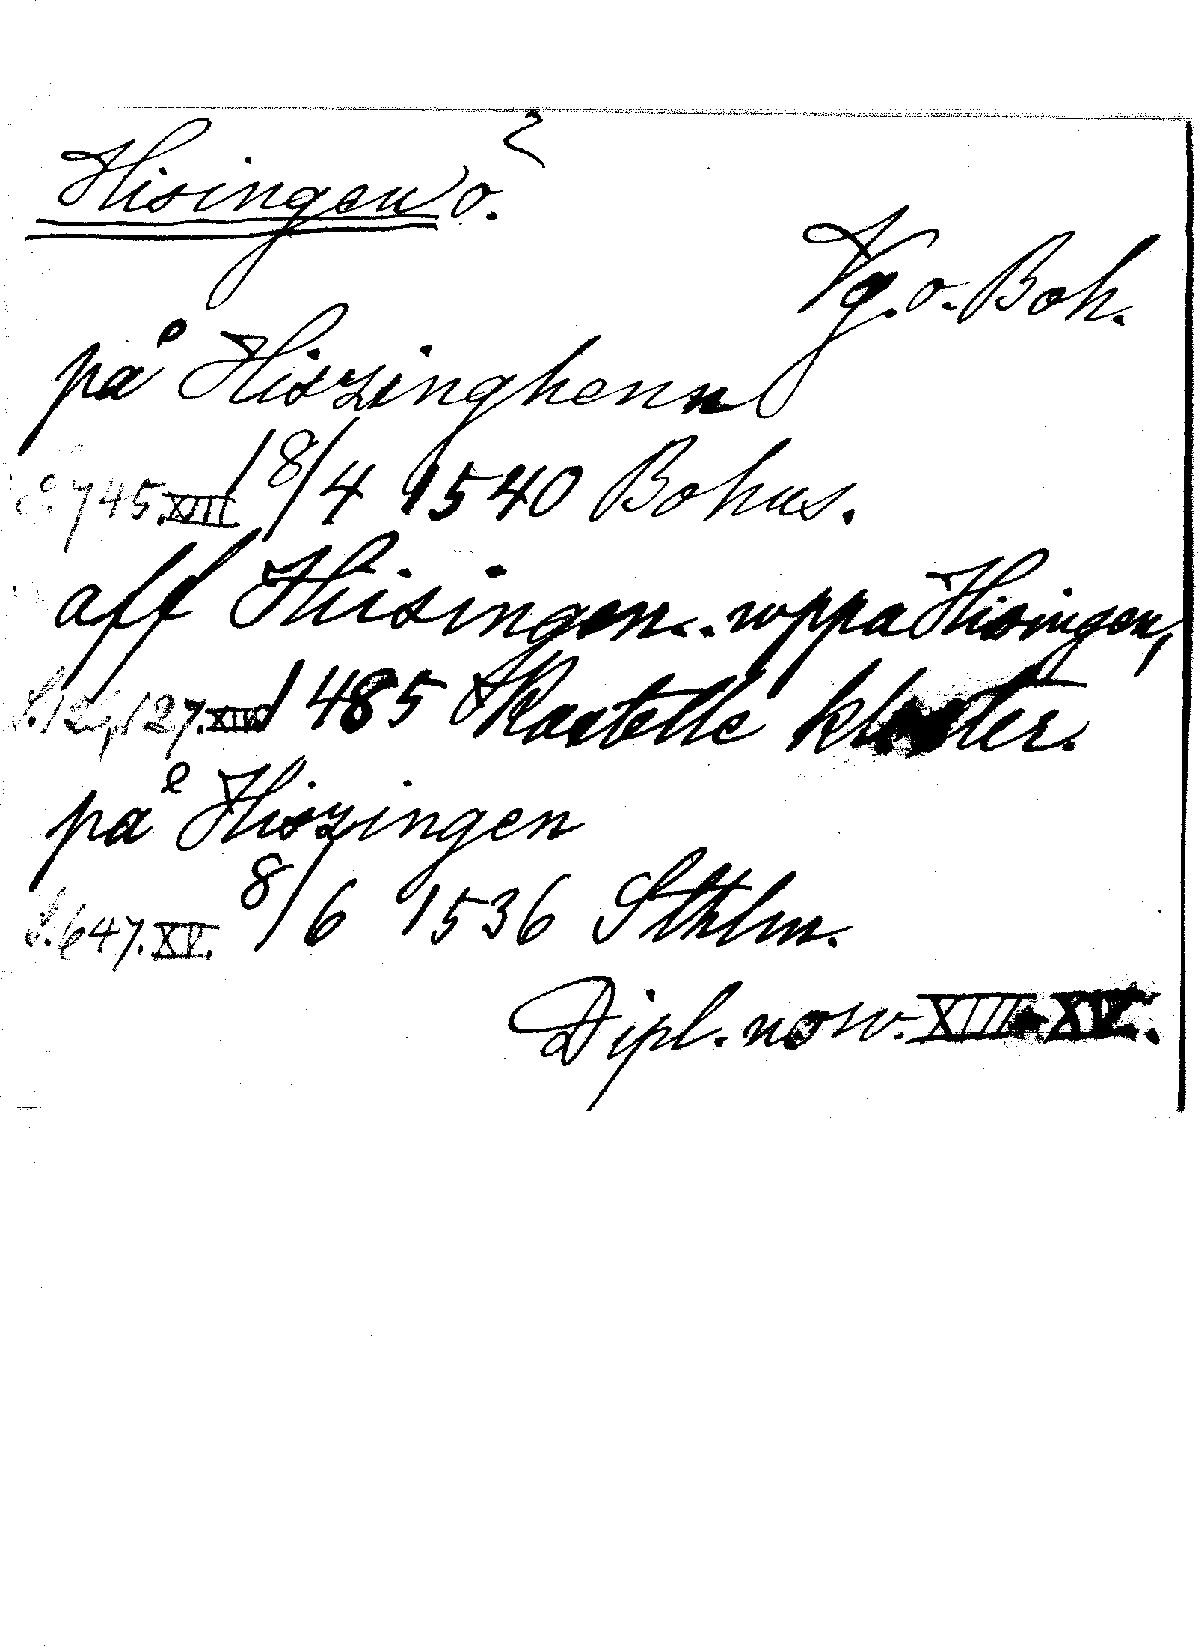 Hisingen ö.
Vg. o. Boh.
på Hiszinghenn
S. 745. XIII 18/4 1540 Bohus.
aff Hiisingen. . wppa Hisingen,
S. 127. XIII 1485 Kastelle kloster.
på Hiszingen
S. 647. XV. 8/6 1536 Sthlm.
Dipl. norv. XIII XV.